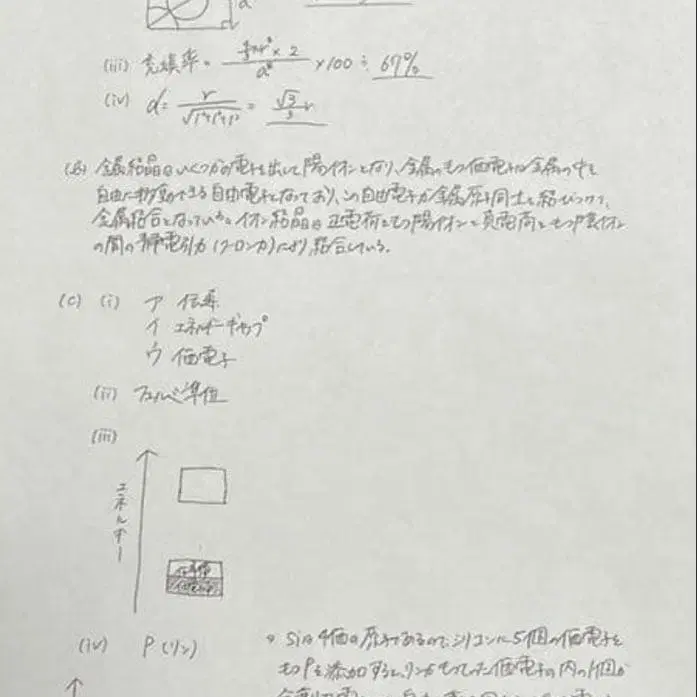 a
(iii) 充填率 = (4/3 πr³ × 2)/a³ × 100 ≒ 67%
(iv) d = r/√(1²+1²+1²) = √3/3 r
(B) 金属結晶はいくつかの電子を出して陽イオンとなり、金属のもつ価電子は金属の中を
自由に移動できる自由電子となっており、この自由電子が金属原子同士を結びつけて、
金属結合となっている。イオン結晶は正電荷をもつ陽イオンと負電荷をもつ陰イオン
の間の静電引力(クーロン力)により、結合している。
(C) (i) ア 伝導
イ エネルギーギャップ
ウ 価電子
(ii) フェルミ準位
(iii)
エネルギー
(iv) P(リン)
Siは4価の原子であるので、シリコンに5個の価電子を
もつPを添加すると、リンがもっていた価電子の内の1個が